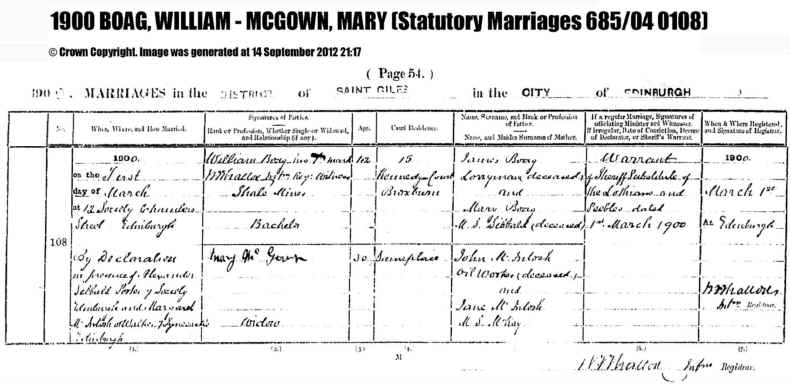 1900 BOAG, WILLIAM - MCGOWN, MARY (Statutory Marriages 685/04 0108)
© Crown Copyright. Image was generated at 14 September 2012 21:17
( Page 54. )
190 . MARRIAGES in the DISTRICT of SAINT GILES in the CITY of EDINBURGH
No.
When, Where, and How Married.
Signatures of Parties.
Rank or Profession, Whether Single or Widowed, and Relationship (if any).
Age.
Usual Residence.
Name, Surname, and Rank or Profession of Father.
Name, and Maiden Surname of Mother.
If a regular Marriage, Signatures of officiating Minister and Witnesses.
If irregular, Date of Conviction, Decree of Declarator, or Sheriff's Warrant.
When & Where Registered, and Signature of Registrar.
108
1900.
on the First
day of March
at 12 Society Chambers
Street Edinburgh
By Declaration
in presence of Alexander
Porter Society
Edinburgh and Margaret
Edinburgh
William Boag his mark
Witness
Shale Miner
Bachelor
Mary McGown
Widow
15
Kennedy Court
Broxburn
30
James Boag
(deceased)
and
Mary Boag
M.S. (deceased)
John McIntosh
Oil Worker (deceased)
and
Jane McIntosh
M.S. McKay
Warrant
of Sheriff Substitute of
the Lothians and
Peebles dated
1st March 1900
1900.
March 1st
At Edinburgh
Registrar.
(1.) (2.) (3.) (4.) (6.) (7.)
M
Registrar.